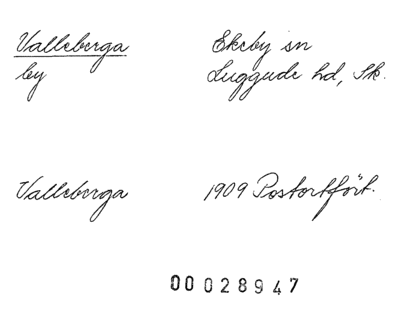 Valleberga Ekeby sn
by Luggude hd, Sk.
Valleberga 1909 Postortfört.
00028947